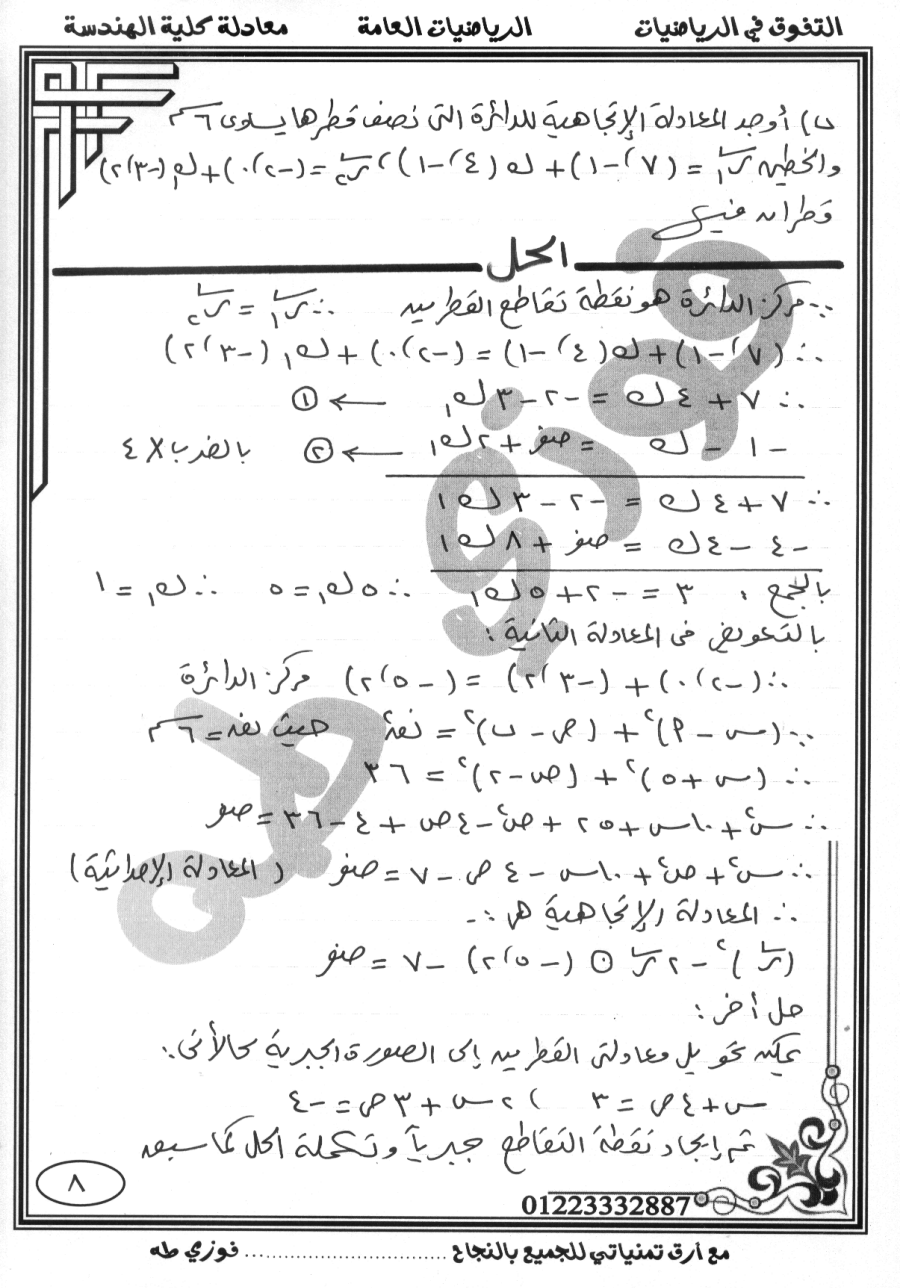 التفوق في الرياضيات الرياضيات العامة معادلة كلية الهندسة
ب) أوجد المعادلة الإتجاهية للدائرة التى نصف قطرها يساوى ٦ سم
والخطين ر١ = (٧ ، -١) + ك (٤ ، -١) ، ر٢ = (-٢ ، ٠) + ك١ (-٣ ، ٢)
قطران فيها
الحل
∵ مركز الدائرة هو نقطة تقاطع القطرين ∴ ر١ = ر٢
∴ (٧ ، -١) + ك (٤ ، -١) = (-٢ ، ٠) + ك١ (-٣ ، ٢)
∴ ٧ + ٤ ك = -٢ - ٣ ك١ ← ①
-١ - ك = صفر + ٢ ك١ ← ② بالضرب × ٤
∴ ٧ + ٤ ك = -٢ - ٣ ك١
-٤ - ٤ ك = صفر + ٨ ك١
بالجمع : ٣ = -٢ + ٥ ك١ ∴ ٥ ك١ = ٥ ∴ ك١ = ١
بالتعويض فى المعادلة الثانية :
∴ (-٢ ، ٠) + (-٣ ، ٢) = (-٥ ، ٢) مركز الدائرة
∵ (س - ٩)² + (ص - ب)² = نق² حيث نق = ٦ سم
∴ (س + ٥)² + (ص - ٢)² = ٣٦
∴ س² + ١٠ س + ٢٥ + ص² - ٤ ص + ٤ - ٣٦ = صفر
∴ س² + ص² + ١٠ س - ٤ ص - ٧ = صفر (المعادلة الإحداثية)
∴ المعادلة الإتجاهية هى :-
(ر)² - ٢ ر ⊙ (-٥ ، ٢) - ٧ = صفر
حل أخر :
يمكن تحويل معادلتى القطرين إلى الصورة الجبرية كالأتى :
س + ٤ ص = ٣ ، ٢ س + ٣ ص = -٤
ثم إيجاد نقطة التقاطع جبرياً وتكملة الحل كما سبق
٨
01223332887
مع أرق تمنياتي للجميع بالنجاح .................................. فوزي طه
فوزي طه